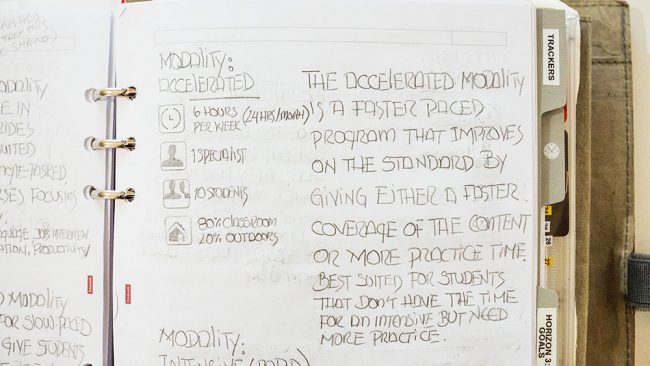 MODALITY:
ACCELERATED
6 HOURS (24 HRS/MONTH)
PER WEEK
1 SPECIALIST
10 STUDENTS
80% CLASSROOM
20% OUTDOORS
THE ACCELERATED MODALITY
IS A FASTER PACED
PROGRAM THAT IMPROVES
ON THE STANDARD BY
GIVING EITHER A FASTER
COVERAGE OF THE CONTENT
OR MORE PRACTICE TIME.
BEST SUITED FOR STUDENTS
THAT DON'T HAVE THE TIME
FOR AN INTENSIVE BUT NEED
MORE PRACTICE.
MODALITY:
TRACKERS
26
27
HORIZON 3:
GOALS
MODALITY
E IN
UITED
SES FOCUSING
JOB INTERVIEW
ATION, PRODUCTIVITY
MODALITY
FOR SLOW-PACED
GIVE STUDENTS